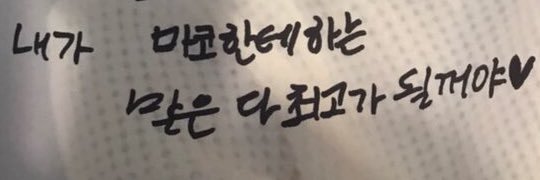 내가 마코한테하는
말은 다 최고가 될꺼야♥